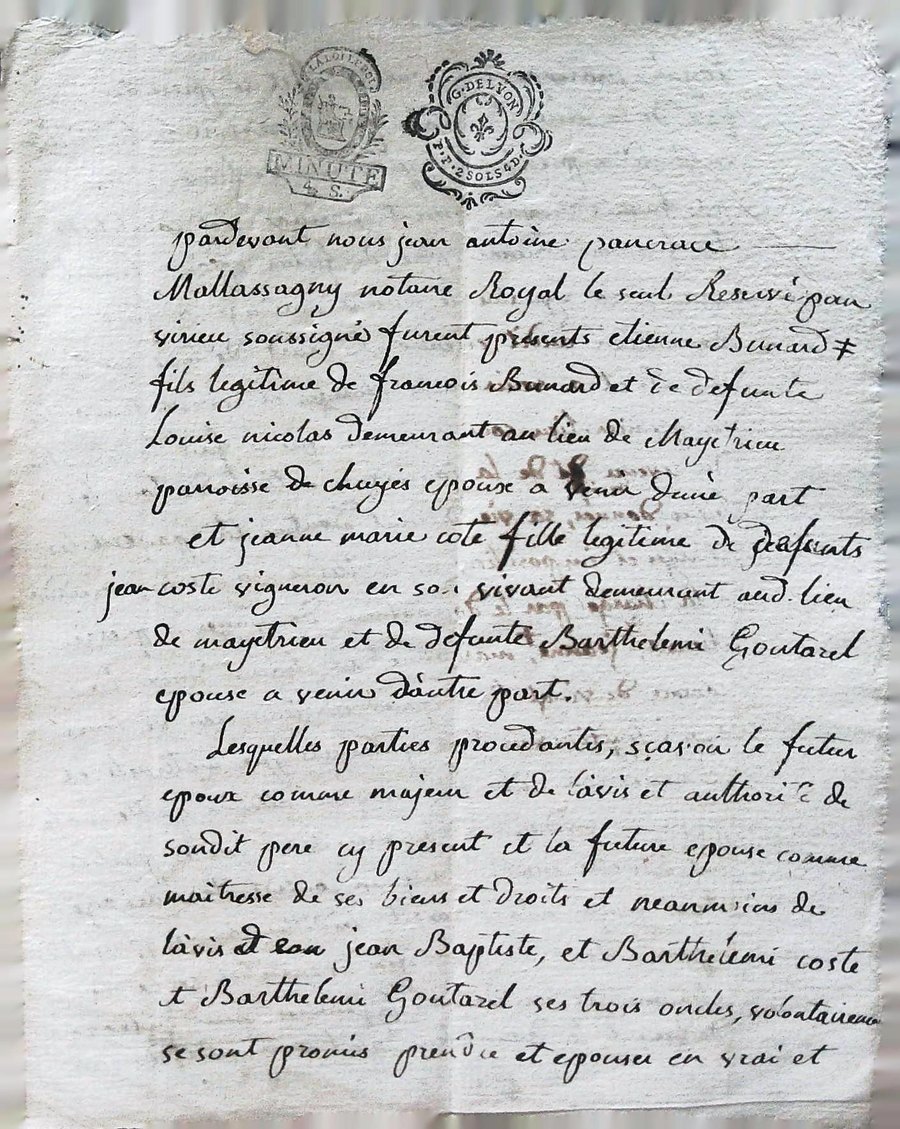 LA LOI LE ROI
MINUTE
4 S.
G. DE LYON
P. P. 2 SOLS 4 D.
pardevant nous jean antoine pancrace
Mallassagny notaire Royal le seul Reservé pour
virieu soussigné furent presents etienne Bunard
fils legitime de francois Bunard et de defunte
Louise nicolas demeurant au lieu de Mayetrieu
parroisse de chuyés epoux a venir d'une part
et jeanne marie cote fille legitime de defunts
jean coste vigneron en son vivant demeurant aud. lieu
de mayetrieu et de defunte Barthelemi Goutarel
epouse a venir d'autre part.
Lesquelles parties procedantes, sçavoir le futur
epoux comme majeur et de l'avis et authorité de
sondit pere cy present et la future epouse comme
maitresse de ses biens et droits et neanmoins de
l'avis jean Baptiste, et Barthelemi coste
et Barthelemi Goutarel ses trois oncles, volontairement
se sont promis prendre et epouser en vrai et